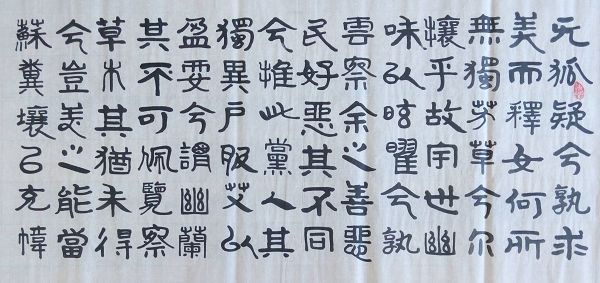 无狐疑兮孰求
美而釋女何所
無獨芳草兮尔
懷乎故宇世幽
昧以眩曜兮孰
雲察余之善惡
民好惡其不同
兮惟此黨人其
獨異戶服艾以
盈要兮謂幽蘭
其不可佩覽察
草木其猶未得
兮豈美之能當
蘇糞壤㠯充幃